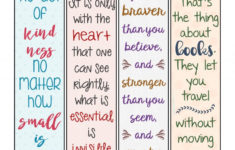 act of
kind
ness no
matter
how
small is
It is only
with the
heart that
one can
see rightly
what is
essential
is
invisible
braver
than you
believe,
and
stronger
than you
seem, and
That's
the thing
about
books.
They let
you
travel
without
moving